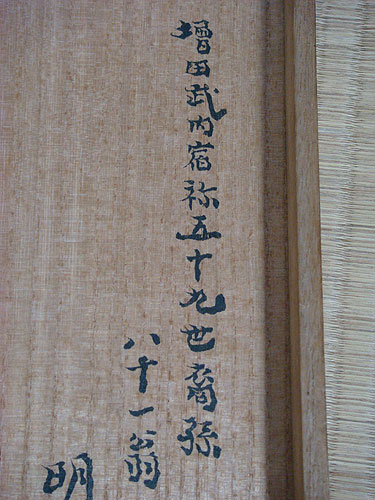 増田武内宿祢五十九世裔孫
八十一翁
明